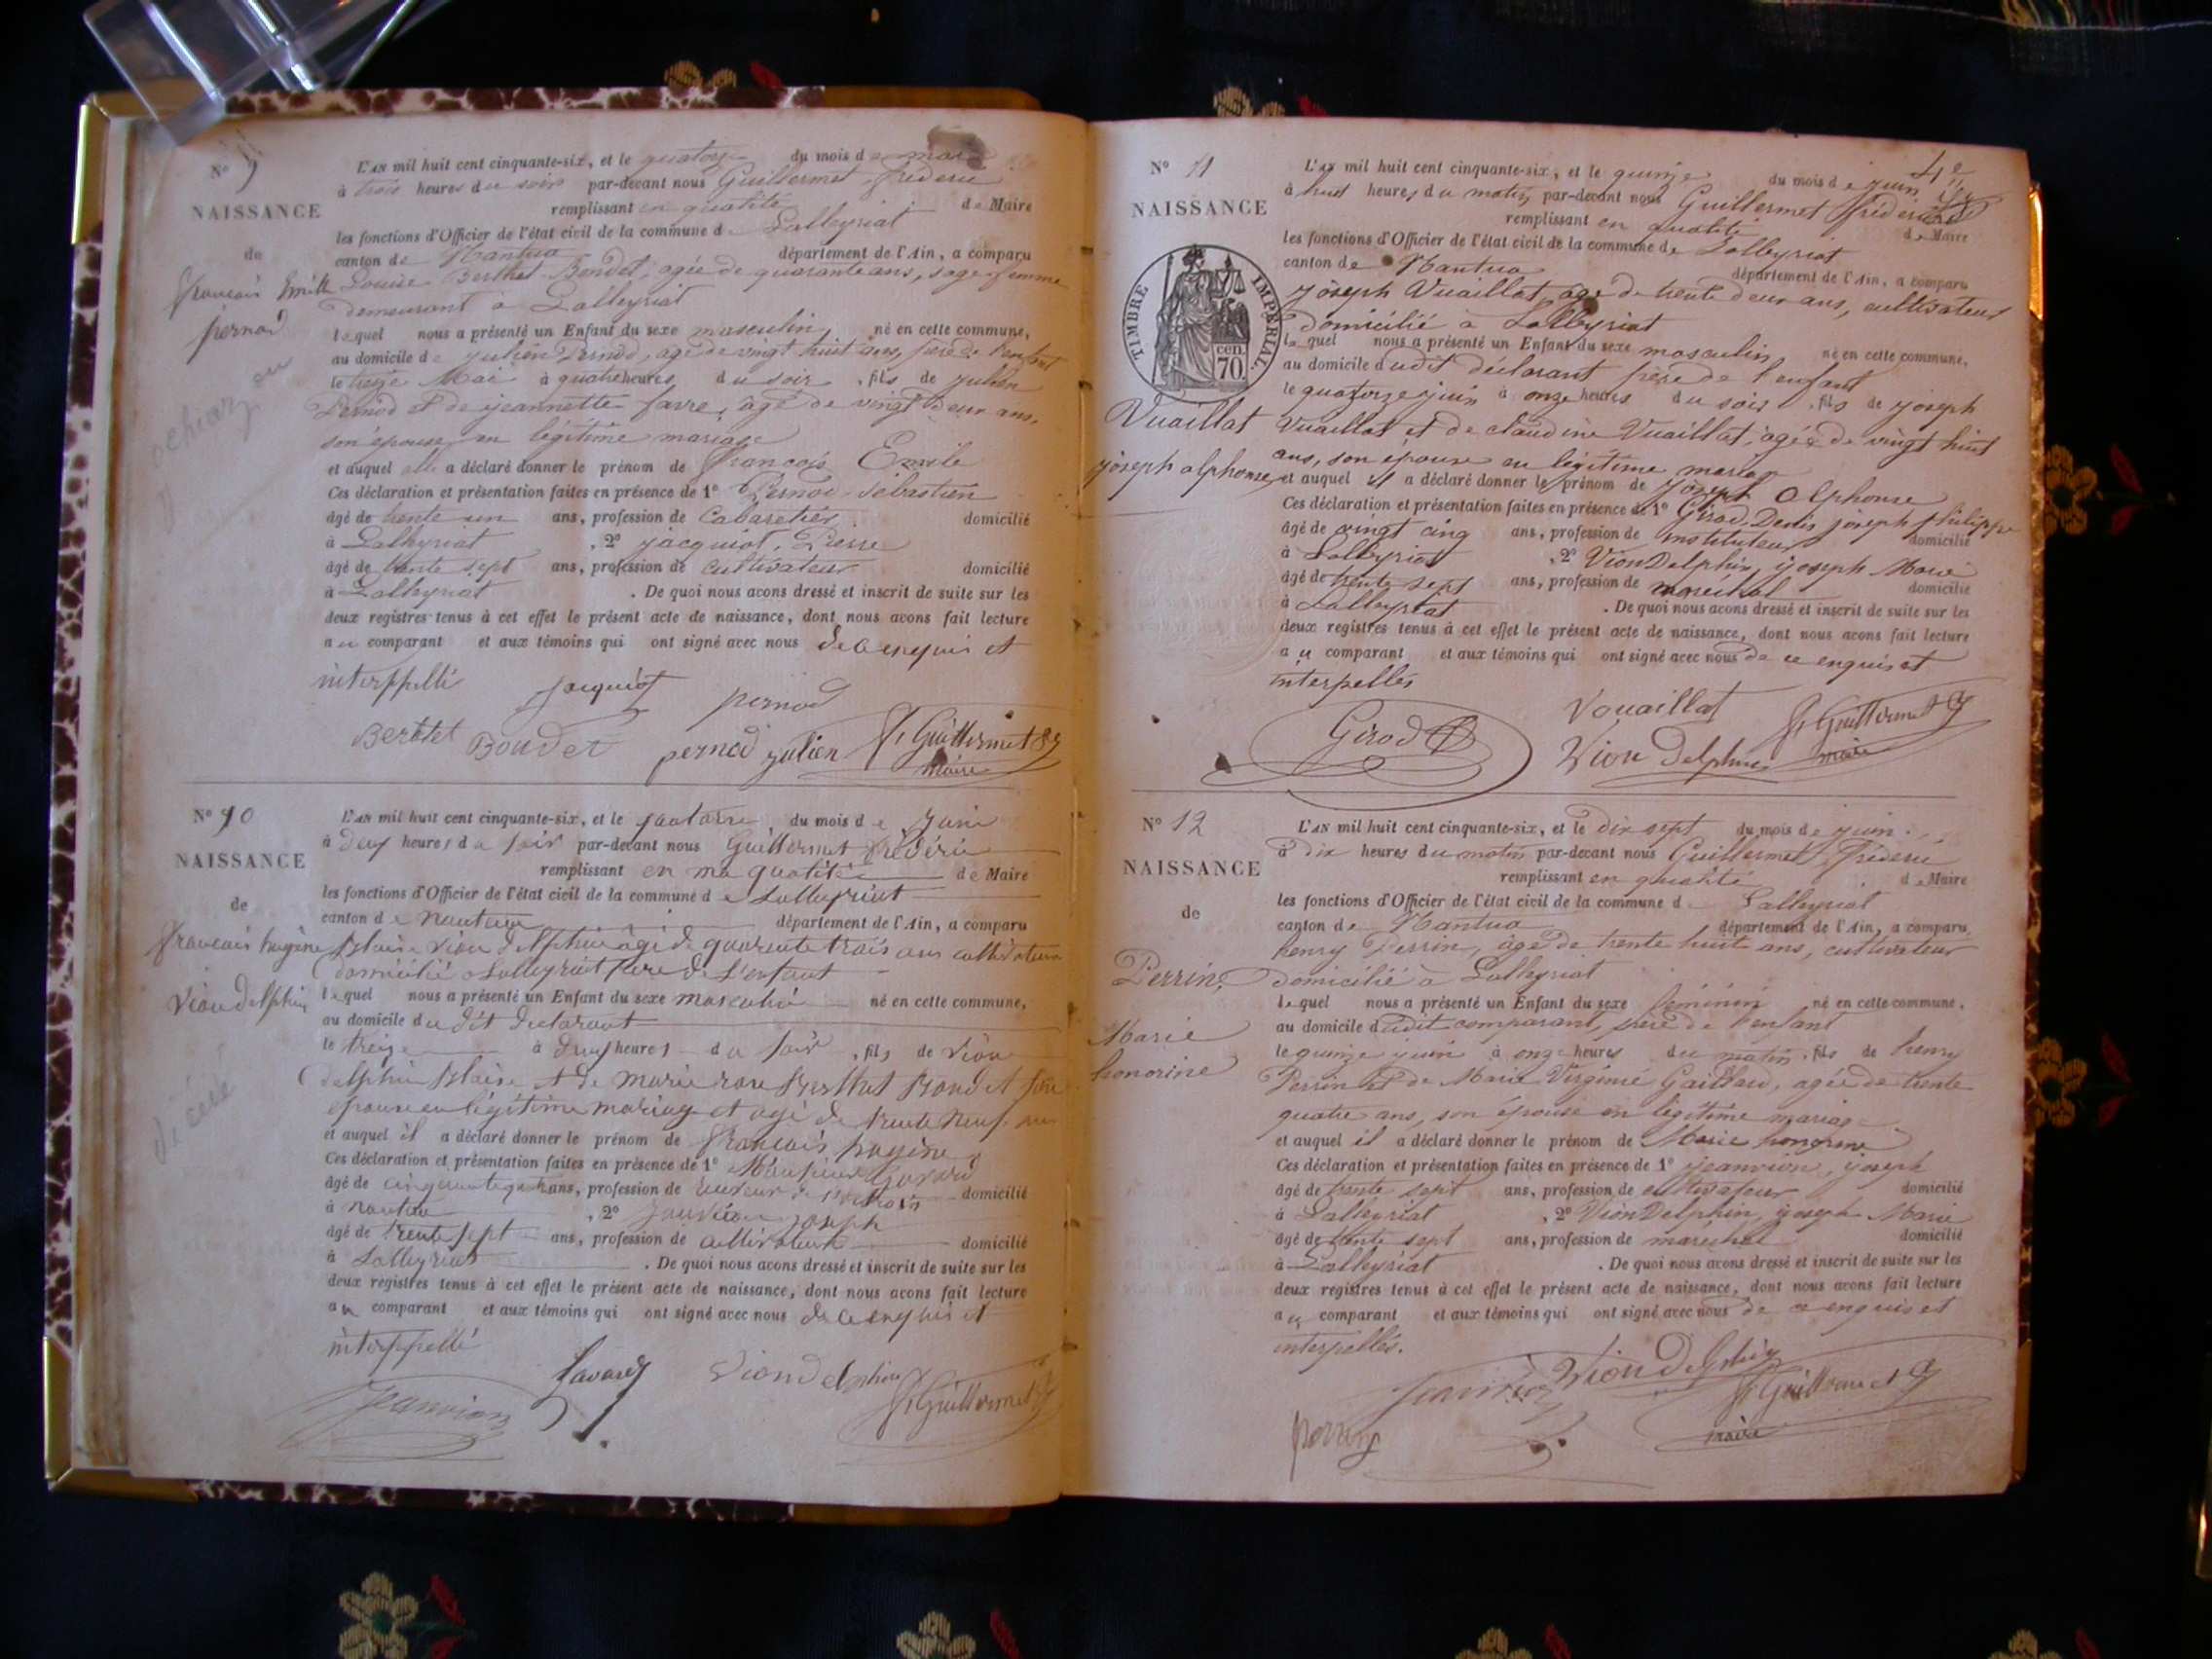 N° 9
NAISSANCE
de
françois Emile
pernod
L'AN mil huit cent cinquante-six, et le quatorze du mois de mai
à trois heures du soir par-devant nous Guillermet, fréderic
remplissant en qualité de Maire
les fonctions d'Officier de l'état civil de la commune de Lalleyriat
canton de Nantua département de l'Ain, a comparu
Louise Berthet-Bondet, agée de quarante ans, sage femme
demeurant à Lalleyriat
lequel nous a présenté un Enfant du sexe masculin, né en cette commune,
au domicile de julien Pernod, agé de vingt huit ans, père de l'enfant
le treize Mai à quatre heures du soir, fils de julien
Pernod et de jeannette favre, agé de vingt deux ans,
son épouse en légitime mariage
et auquel elle a déclaré donner le prénom de françois Emile
Ces déclaration et présentation faites en présence de 1° Pernod Sébastien
âgé de trente un ans, profession de Cabaretier domicilié
à Lalleyriat, 2° jacquiot, Pierre
âgé de trente sept ans, profession de cultivateur domicilié
à Lalleyriat. De quoi nous avons dressé et inscrit de suite sur les
deux registres tenus à cet effet le présent acte de naissance, dont nous avons fait lecture
au comparant et aux témoins qui ont signé avec nous de ce enquis et
interppellé
jacquiot pernod
Bertet Boudet pernod julien f. Guillermet
maire
N° 10
NAISSANCE
de
françois hugène
Viondelphin
décédé
L'AN mil huit cent cinquante-six, et le du mois de juin
à deux heures du soir par-devant nous Guillermet frederic
remplissant en ma qualité de Maire
les fonctions d'Officier de l'état civil de la commune de Lalleyriat
canton de nantua département de l'Ain, a comparu
Blaise vion delphin agé de quarente trois ans cultivateur
domicilié a Lalleyriat père de l'enfant
lequel nous a présenté un Enfant du sexe masculin né en cette commune,
au domicile du dit declarant
le treize à deux heures du soir, fils de vion
delphin Blaise et de marie rose Berthet Bondet son
epouse en légitime mariage et agé de trente neuf ans
et auquel il a déclaré donner le prénom de françois hugène
Ces déclaration et présentation faites en présence de 1°
âgé de cinquante quatre ans, profession de domicilié
à nantua, 2° janvion joseph
âgé de trente sept ans, profession de cultivateur domicilié
à Lalleyriat. De quoi nous avons dressé et inscrit de suite sur les
deux registres tenus à cet effet le présent acte de naissance, dont nous avons fait lecture
au comparant et aux témoins qui ont signé avec nous de ce enquis et
interppellé
Viondelphin
Jeanvion f. Guillermet
N° 11
NAISSANCE
TIMBRE IMPÉRIAL
70 cen.
Vuaillat
joseph alphonse
L'AN mil huit cent cinquante-six, et le quinze du mois de juin
à huit heures du matin, par-devant nous Guillermet fréderic
remplissant en qualité de Maire
les fonctions d'Officier de l'état civil de la commune de Lalleyriat
canton de Nantua département de l'Ain, a comparu
joseph Vuaillat, agé de trente deux ans, cultivateur
domicilié à Lalleyriat
lequel nous a présenté un Enfant du sexe masculin, né en cette commune,
au domicile dudit déclarant père de l'enfant
le quatorze juin à onze heures du soir, fils de joseph
Vuaillat et de claudine Vuaillat, agée de vingt huit
ans, son épouse en légitime mariage
et auquel il a déclaré donner le prénom de joseph alphonse
Ces déclaration et présentation faites en présence de 1° Girod, Denis joseph philippe
âgé de vingt cinq ans, profession de instituteur domicilié
à Lalleyriat, 2° VionDelphin, joseph Marie
âgé de trente sept ans, profession de maréchal domicilié
à Lalleyriat. De quoi nous avons dressé et inscrit de suite sur les
deux registres tenus à cet effet le présent acte de naissance, dont nous avons fait lecture
au comparant et aux témoins qui ont signé avec nous de ce enquis et
interpellés
Girod Vouaillat f. Guillermet
Vion Delphin maire
N° 12
NAISSANCE
de
Perrin,
Marie
honorine
L'AN mil huit cent cinquante-six, et le dix sept du mois de juin
à dix heures du matin par-devant nous Guillermet, fréderic
remplissant en qualité de Maire
les fonctions d'Officier de l'état civil de la commune de Lalleyriat
canton de Nantua département de l'Ain, a comparu
henry Perrin, agé de trente huit ans, cultivateur
domicilié à Lalleyriat
lequel nous a présenté un Enfant du sexe féminin né en cette commune,
au domicile dudit comparant, père de l'enfant
le quinze juin à onze heures du matin, fils de henry
Perrin et de Marie Virginie Gaillard, agée de trente
quatre ans, son épouse en légitime mariage
et auquel il a déclaré donner le prénom de Marie honorine
Ces déclaration et présentation faites en présence de 1° jeanvion, joseph
âgé de trente sept ans, profession de cultivateur domicilié
à Lalleyriat, 2° VionDelphin, joseph Marie
âgé de trente sept ans, profession de maréchal domicilié
à Lalleyriat. De quoi nous avons dressé et inscrit de suite sur les
deux registres tenus à cet effet le présent acte de naissance, dont nous avons fait lecture
au comparant et aux témoins qui ont signé avec nous de ce enquis et
interpellés.
Jeanvion VionDelphin
perrin f. Guillermet
maire